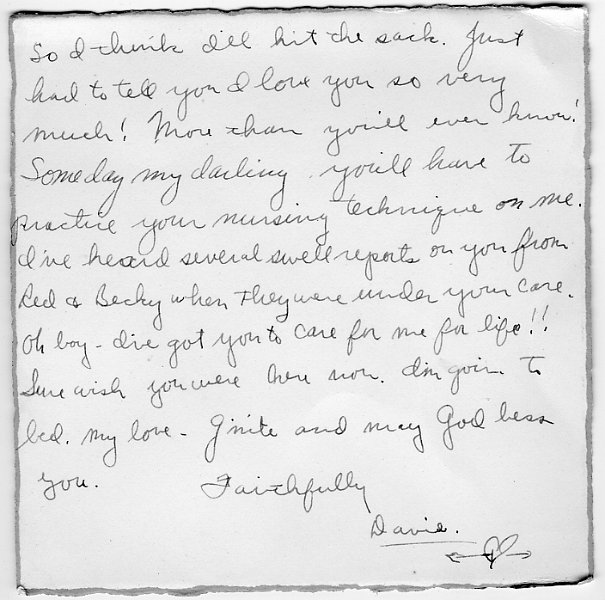 So I think I'll hit the sack. Just
had to tell you I love you so very
much! More than you'll ever know!
Someday my darling you'll have to
practice your nursing technique on me.
I've heard several swell reports on you from
Red & Becky when they were under your care.
Oh boy - I've got you to care for me for life!!
Sure wish you were here now. I'm goin to
bed. my love - G'nite and may God bess
you. Faithfully
Davie.